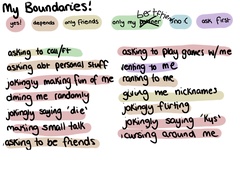 My Boundaries!
yes! depends only friends only my bestfriend no :( ask first
asking to call/ft
asking abt personal stuff
jokingly making fun of me
dming me randomly
jokingly saying 'die'
making small talk
asking to be friends
asking to play games w/me
venting to me
ranting to me
giving me nicknames
jokingly flirting
jokingly saying 'kys'
cursing around me